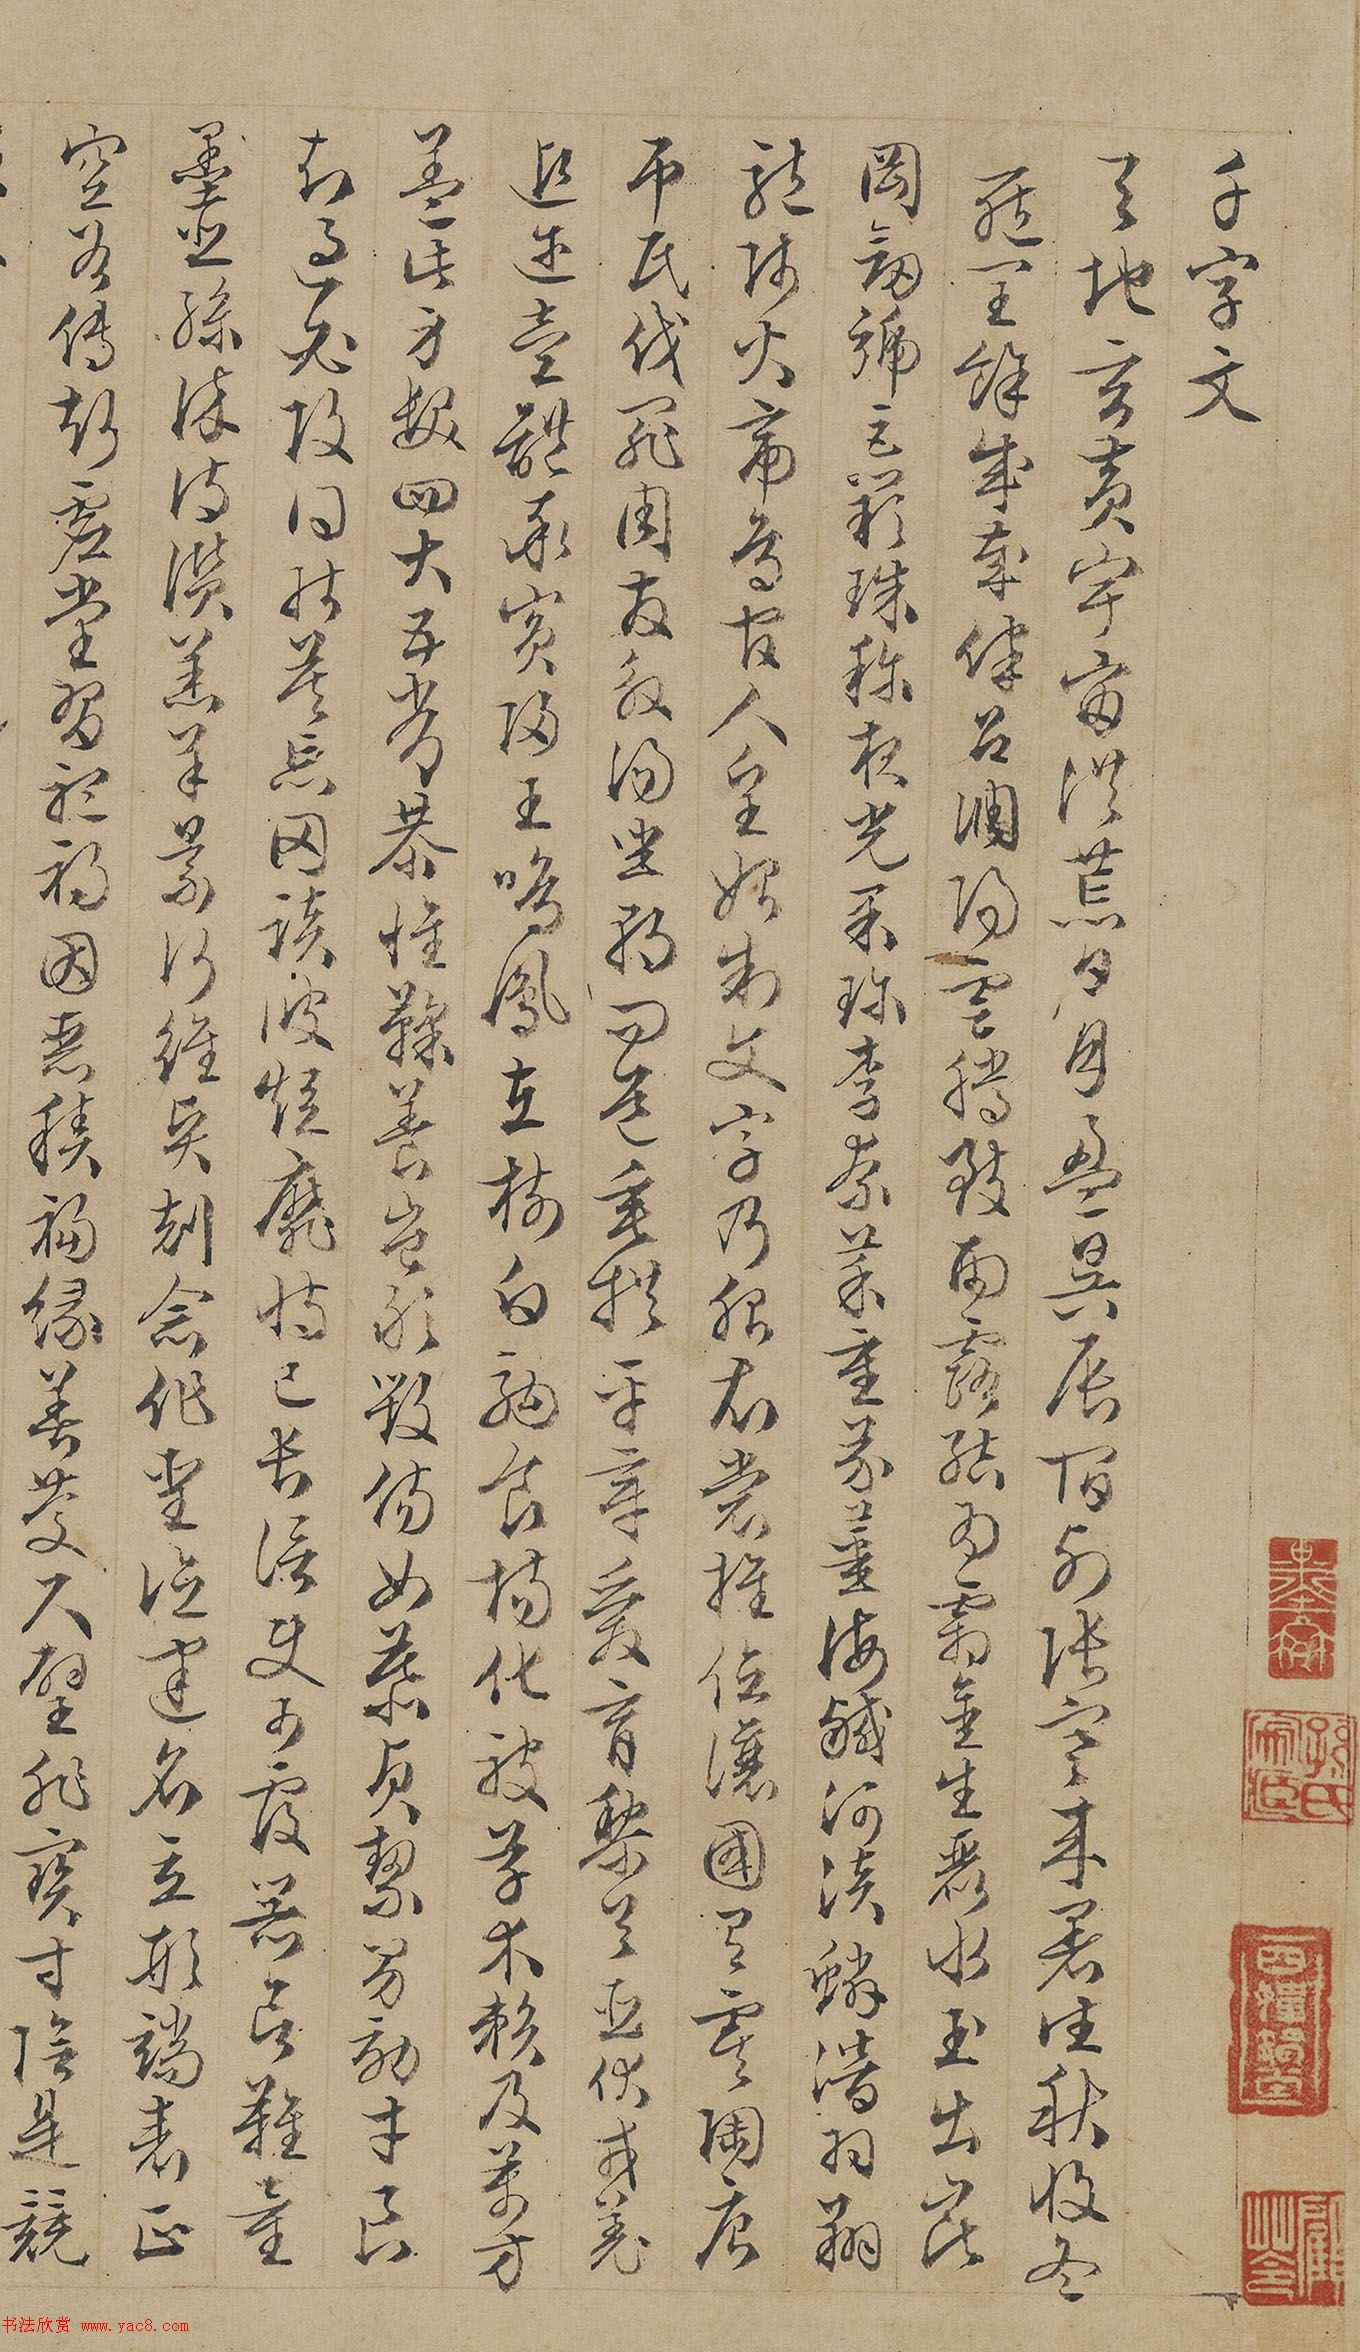 千字文
天地玄黃宇宙洪荒日月盈昃辰宿列張寒來暑往秋收冬
藏閏餘成歲律呂調陽雲騰致雨露結為霜金生麗水玉出崑
岡劍號巨闕珠稱夜光菓珍李柰菜重芥薑海鹹河淡鱗潛羽翔
龍師火帝鳥官人皇始制文字乃服衣裳推位讓國有虞陶唐
弔民伐罪周發殷湯坐朝問道垂拱平章愛育黎首臣伏戎羌
遐邇壹體率賓歸王鳴鳳在樹白駒食場化被草木賴及萬方
蓋此身髮四大五常恭惟鞠養豈敢毀傷女慕貞絜男效才良
知過必改得能莫忘罔談彼短靡恃己長信使可覆器欲難量
墨悲絲染詩讚羔羊景行維賢剋念作聖德建名立形端表正
空谷傳聲虛堂習聽禍因惡積福緣善慶尺璧非寶寸陰是競
书法欣赏 www.yac8.com